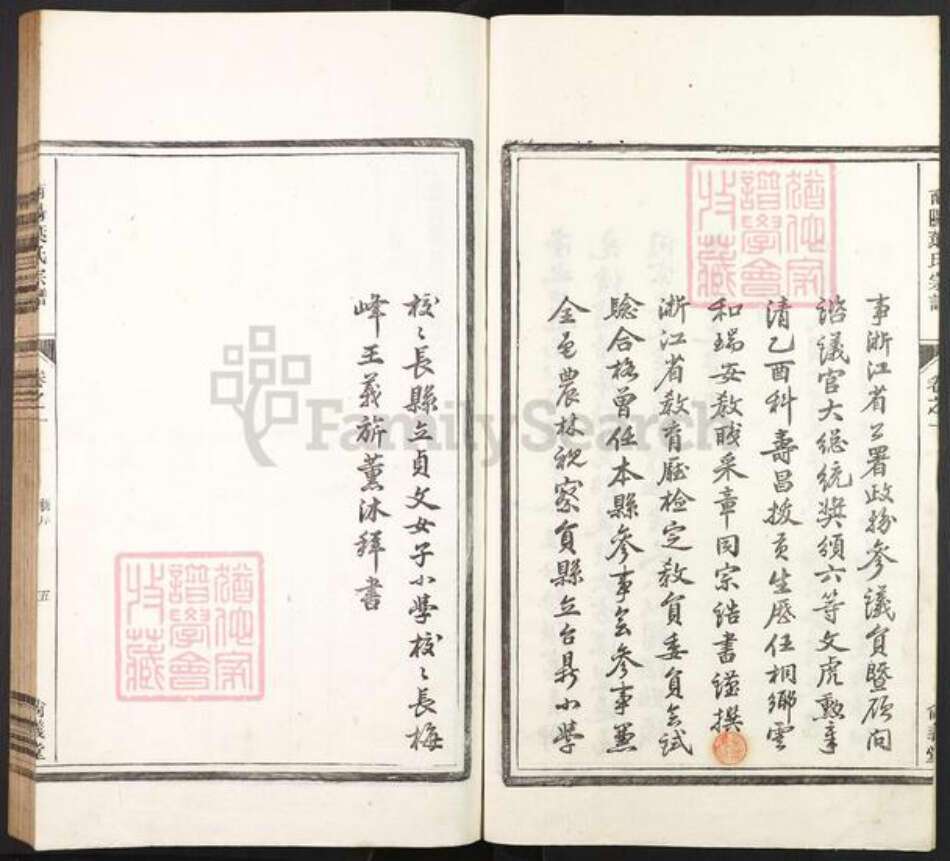 事浙江省公署政務參議員暨顧問
諮議官大總統獎頒六等文虎勲章
清乙酉科壽昌拔貢生歷任桐鄉雲
和瑞安教職采章同宗誥書謹撰
浙江省教育廳檢定教員委員會試
驗合格曾任本縣參事會參事兼
全邑農林視察員縣立台鼎小學
校〻長縣立貞文女子小學校〻長梅
峰王義旂薰沐拜書
譜學會
收藏
葉氏宗譜
卷之一
五
義堂
FamilySearch